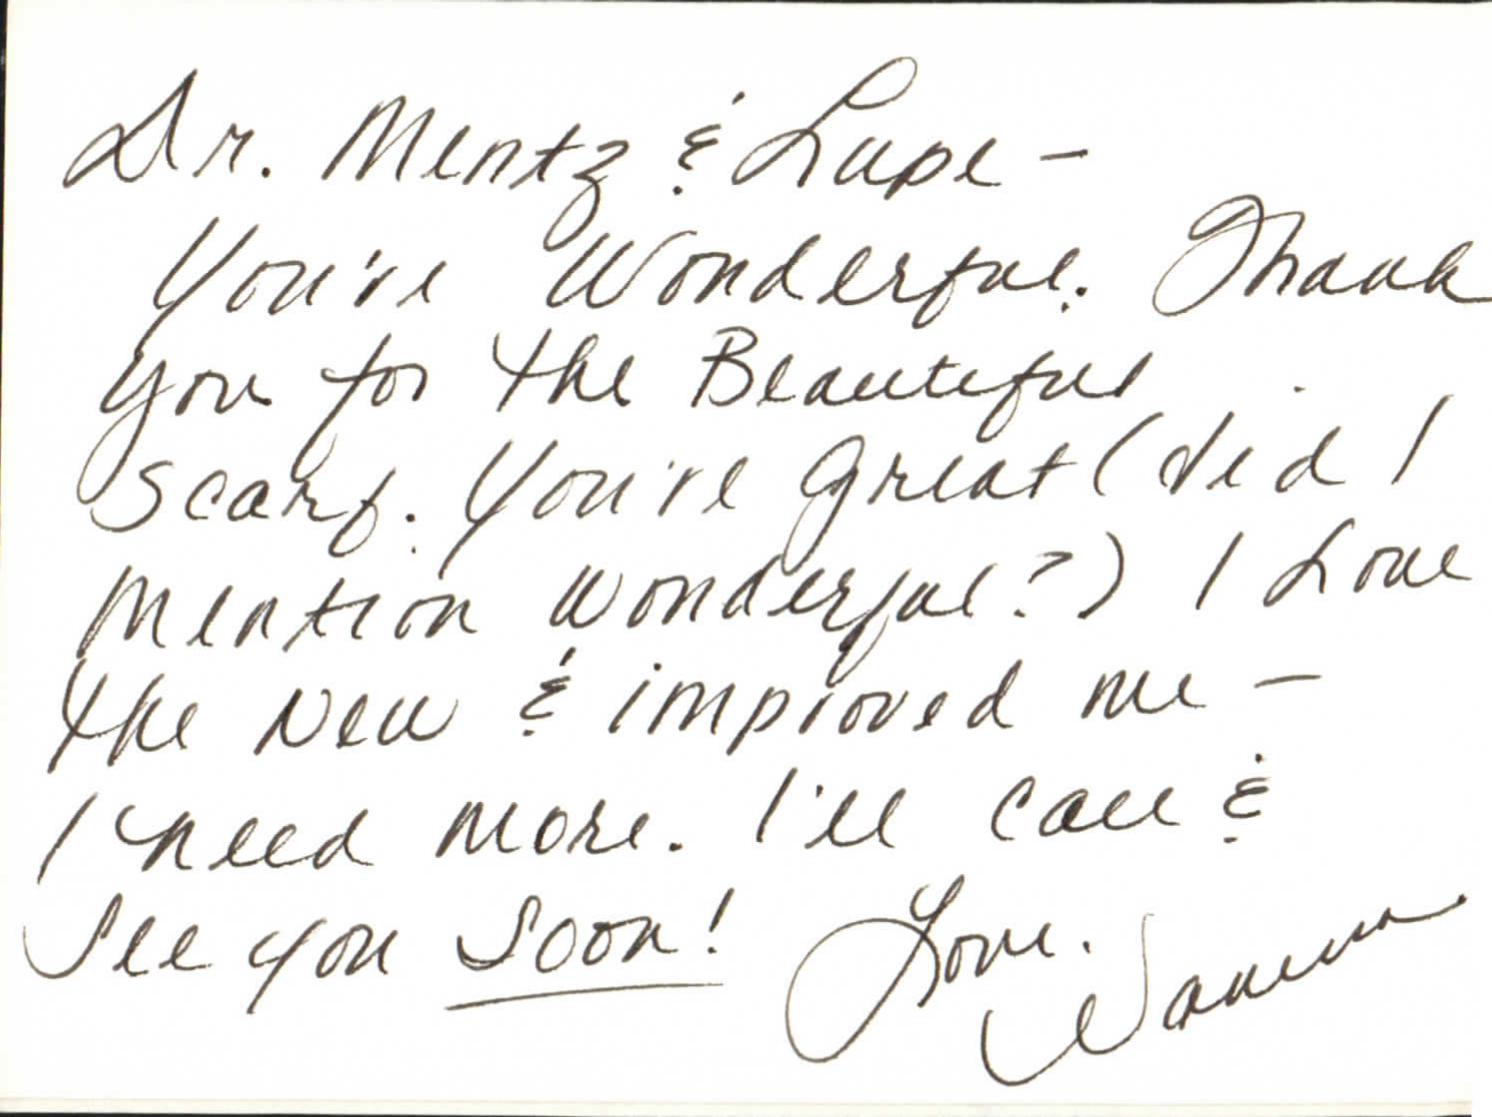 Dr. Mentz & Lupe –
You're Wonderful. Thank
you for the Beautiful
Scarf. You're great (did I
mention wonderful?) I Love
the New & improved me –
I need more. I'll call &
See you Soon!
Love,